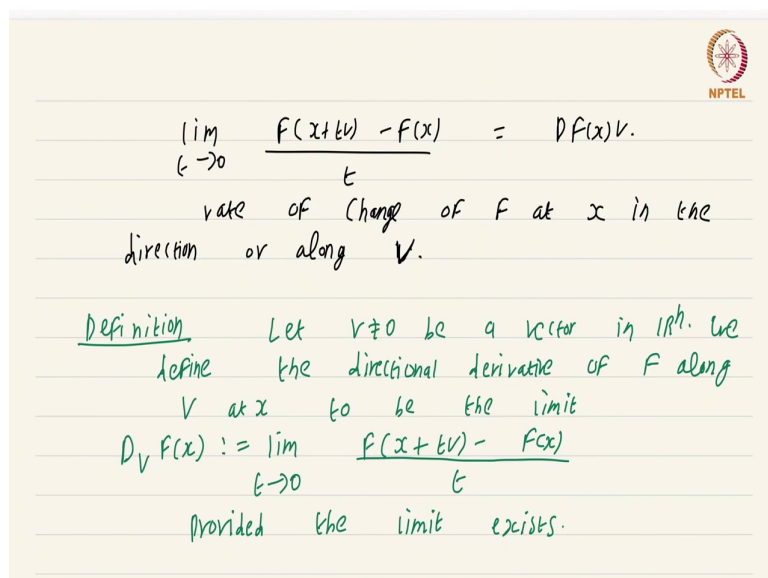 NPTEL
lim F(x+tv) - F(x) = DF(x)v.
t→0 t
rate of Change of F at x in the
direction or along V.
Definition Let v≠0 be a vector in ℝⁿ. We
define the directional derivative of F along
V at x to be the limit
D_V F(x) := lim F(x+tv) - F(x)
t→0 t
provided the limit exists.